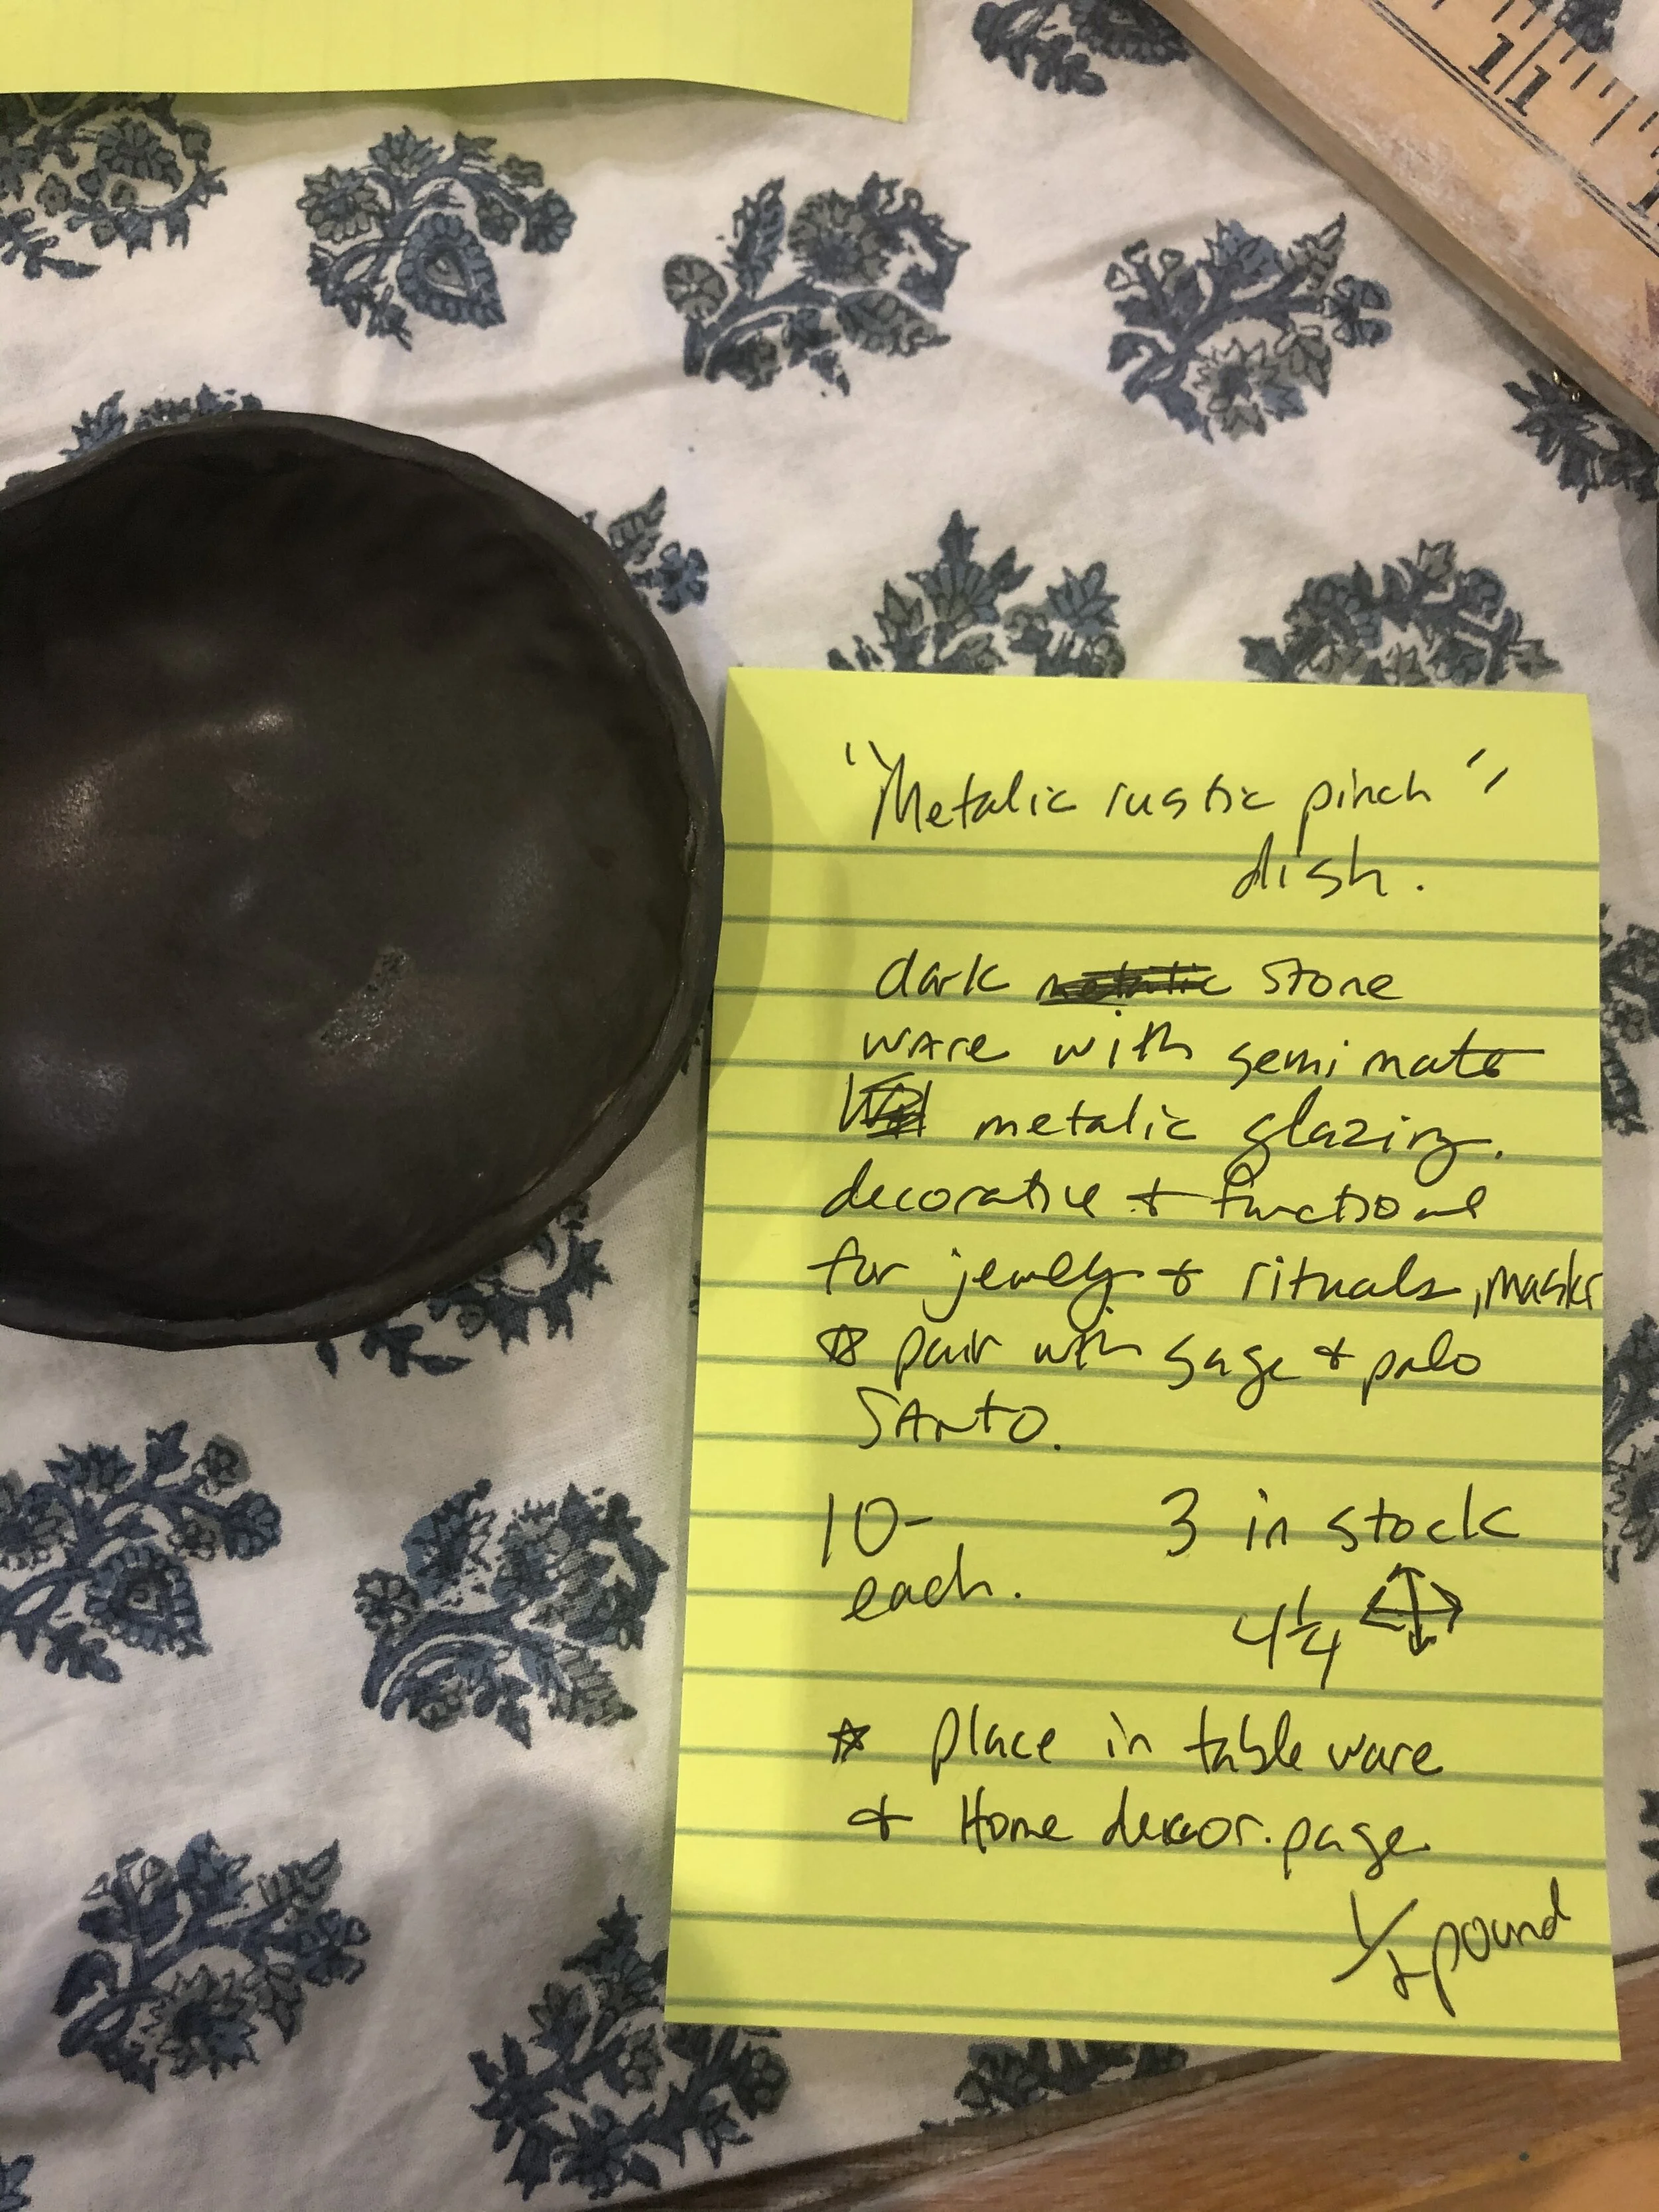 11
1
"Metalic rustic pinch"
dish.
dark stone
ware with semi mate
metalic glazing.
decorative + functional
for jewely + rituals, masks
☆ pair with sage + palo
SAnto.
10- 3 in stock
each.
4 1/4
☆ place in table ware
+ Home decor. page.
1/2 pound